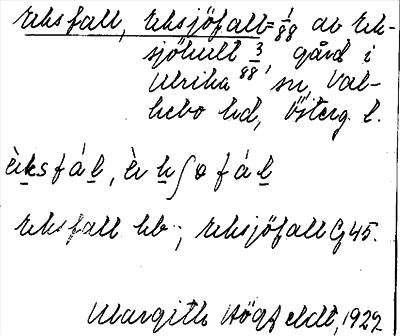 Eksfall, Eksjöfall = 1/88 av Ek-
sjöhult 3/88, gård i
Ulrika sn, Val-
kebo hd, Österg. l.
èksfál, è
Eksfall hb; Eksjöfall G 45.
Margith Högfeldt, 1922